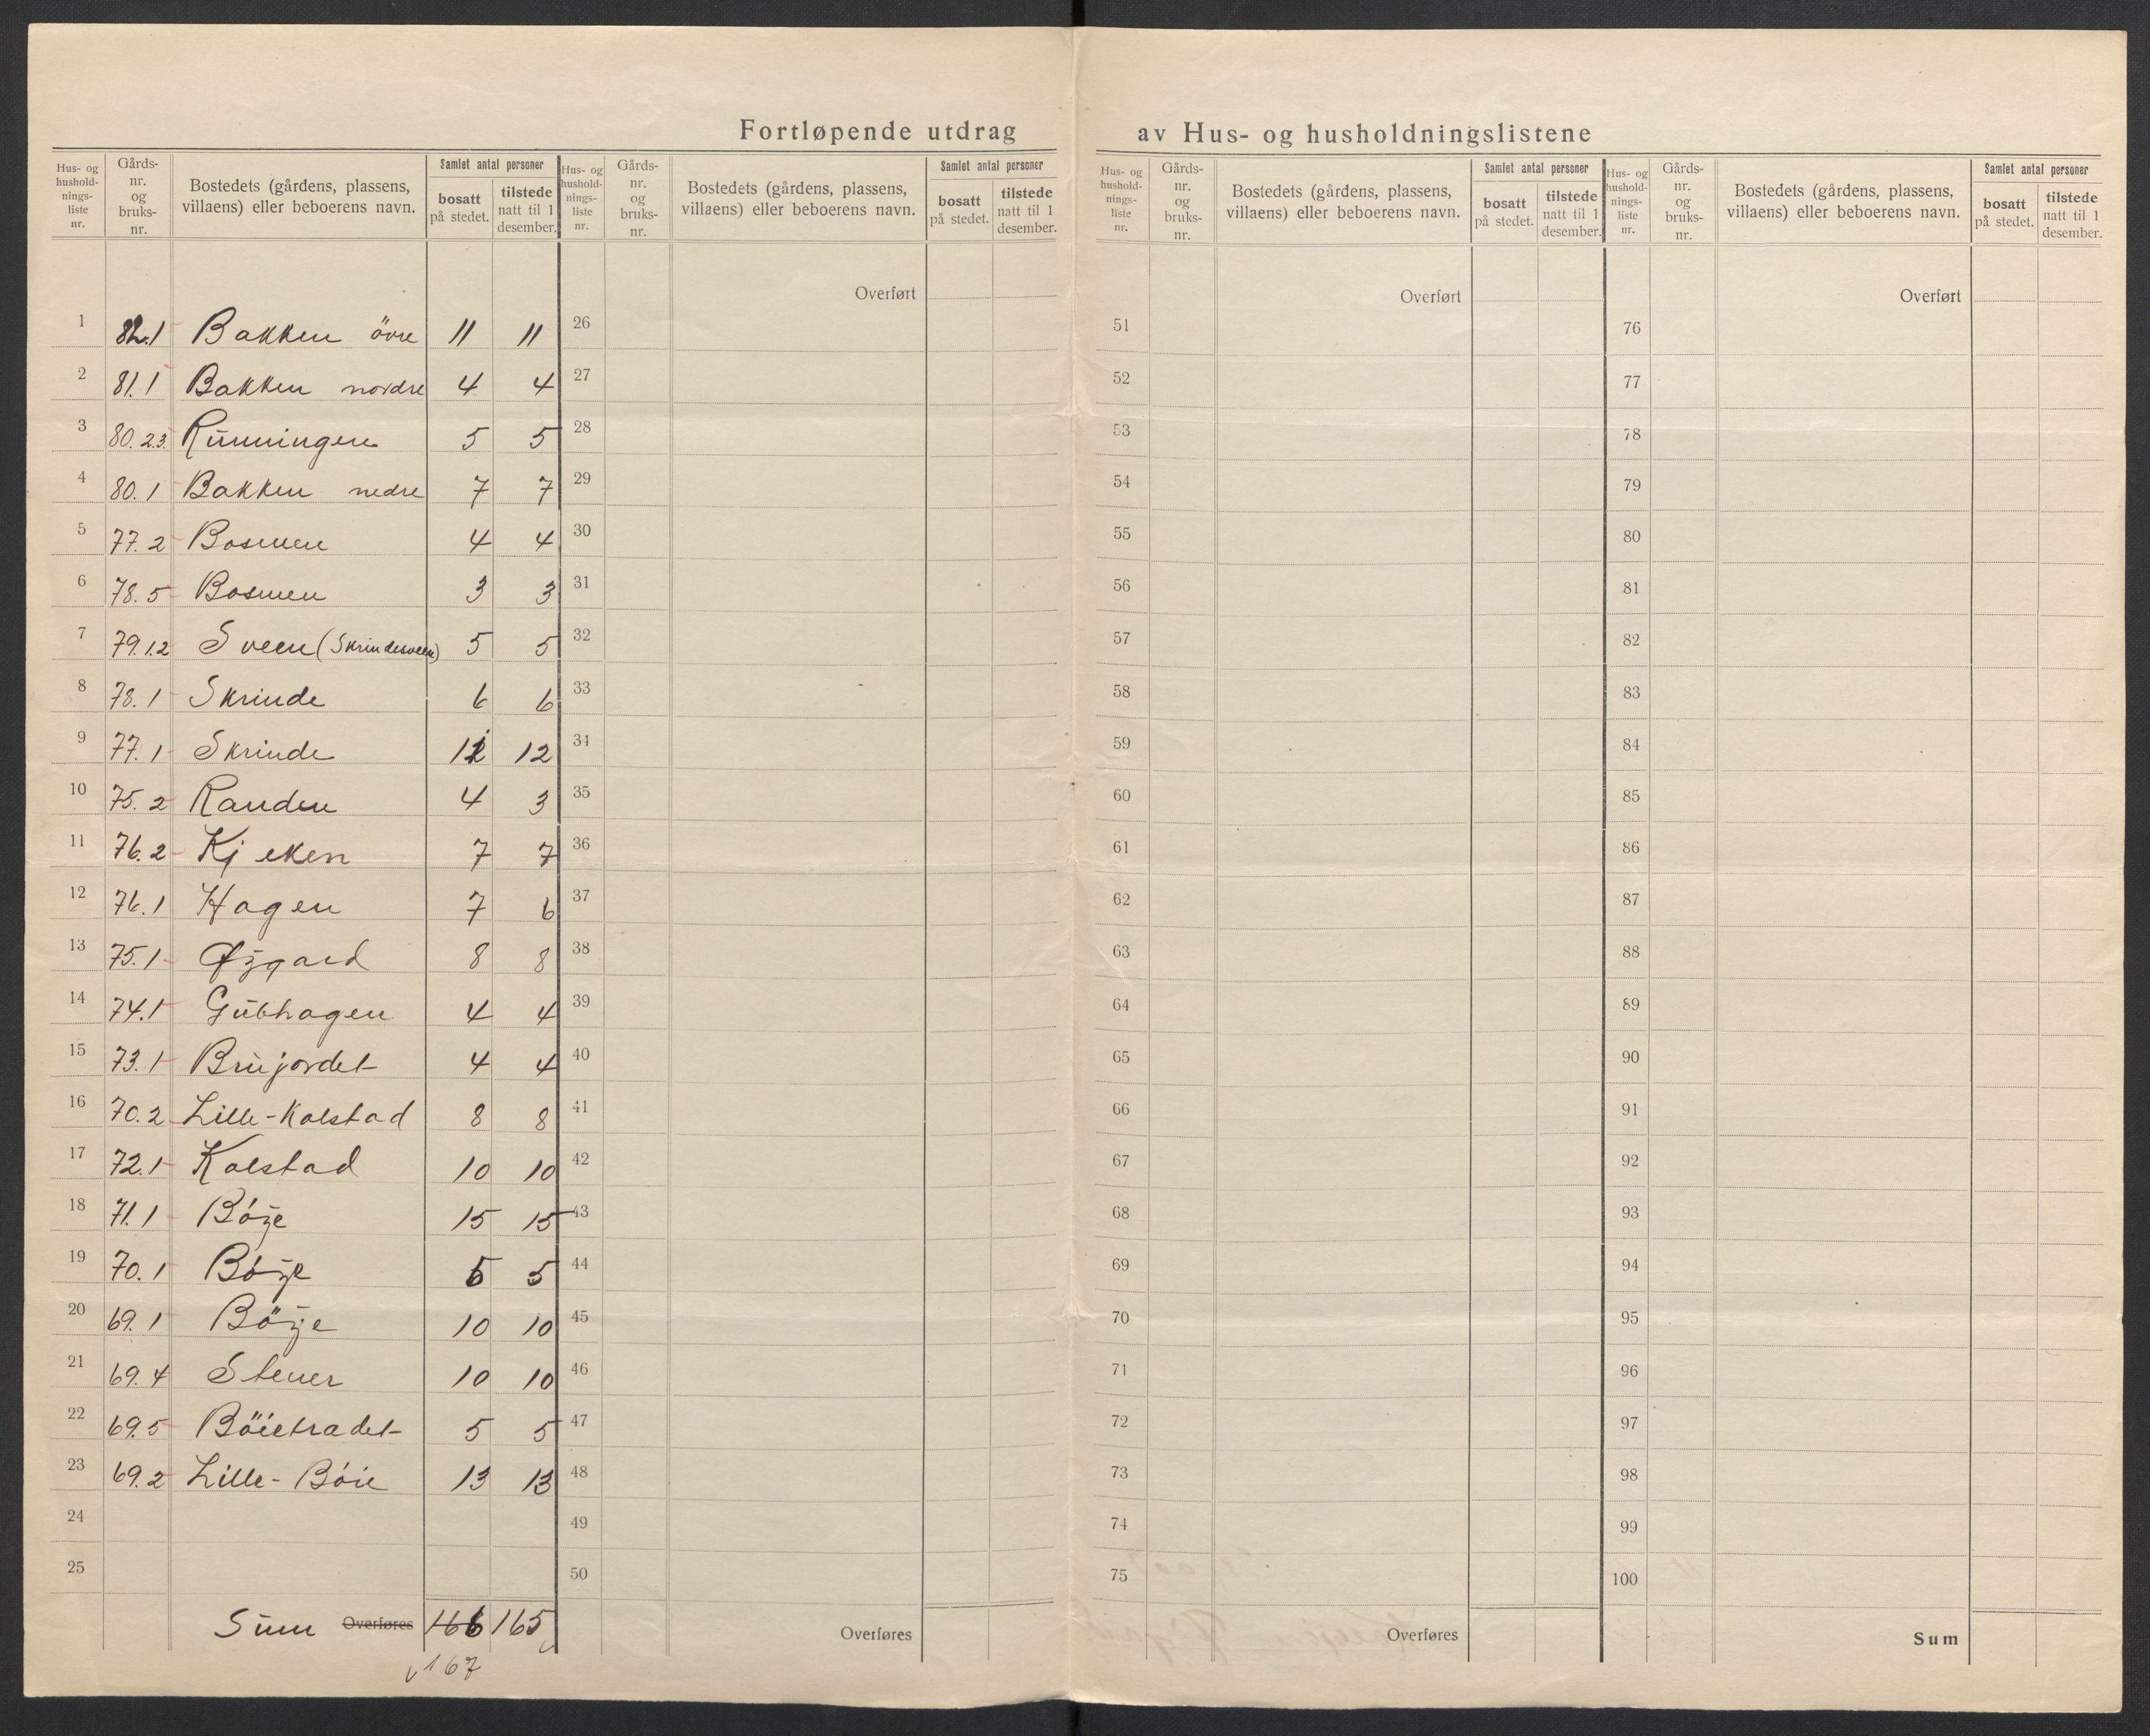 Fortløpende utdrag av Hus- og husholdningslistene
Hus- og hushold-nings-liste nr. Gårds-nr. og bruks-nr. Bostedets (gårdens, plassens, villaens) eller beboerens navn. Samlet antal personer bosatt på stedet. tilstede natt til 1 desember.
Hus- og hushold-nings-liste nr. Gårds-nr. og bruks-nr. Bostedets (gårdens, plassens, villaens) eller beboerens navn. Samlet antal personer bosatt på stedet. tilstede natt til 1 desember.
Hus- og hushold-nings-liste nr. Gårds-nr. og bruks-nr. Bostedets (gårdens, plassens, villaens) eller beboerens navn. Samlet antal personer bosatt på stedet. tilstede natt til 1 desember.
Hus- og hushold-nings-liste nr. Gårds-nr. og bruks-nr. Bostedets (gårdens, plassens, villaens) eller beboerens navn. Samlet antal personer bosatt på stedet. tilstede natt til 1 desember.
Overført Overført Overført
1 82.1 Bakken övre 11 11 26 51 76
2 81.1 Bakken nordre 4 4 27 52 77
3 80.2.3. Rünningen 5 5 28 53 78
4 80.1 Bakken nedre 7 7 29 54 79
5 77.2 Bosmen 4 4 30 55 80
6 78.5 Bosmen 3 3 31 56 81
7 79.1.2 Sveen (Skrindesveen) 5 5 32 57 82
8 78.1 Skrinde 6 6 33 58 83
9 77.1 Skrinde 12 12 34 59 84
10 75.2 Randen 4 3 35 60 85
11 76.2 Kjeken 7 7 36 61 86
12 76.1 Hagen 7 6 37 62 87
13 75.1 Øygard 8 8 38 63 88
14 74.1 Gübhagen 4 4 39 64 89
15 73.1 Brujordet 4 4 40 65 90
16 70.2 Lille-Kolstad 8 8 41 66 91
17 72.1 Kolstad 10 10 42 67 92
18 71.1 Bóye 15 15 43 68 93
19 70.1 Bóye 5 5 44 69 94
20 69.1 Böye 10 10 45 70 95
21 69.4 Stener 10 10 46 71 96
22 69.5 Böietradet 5 5 47 72 97
23 69.2 Lille-Bóie 13 13 48 73 98
24 49 74 99
25 50 75 100
Süm Overføres 166 165 Overføres Overføres Sum
167